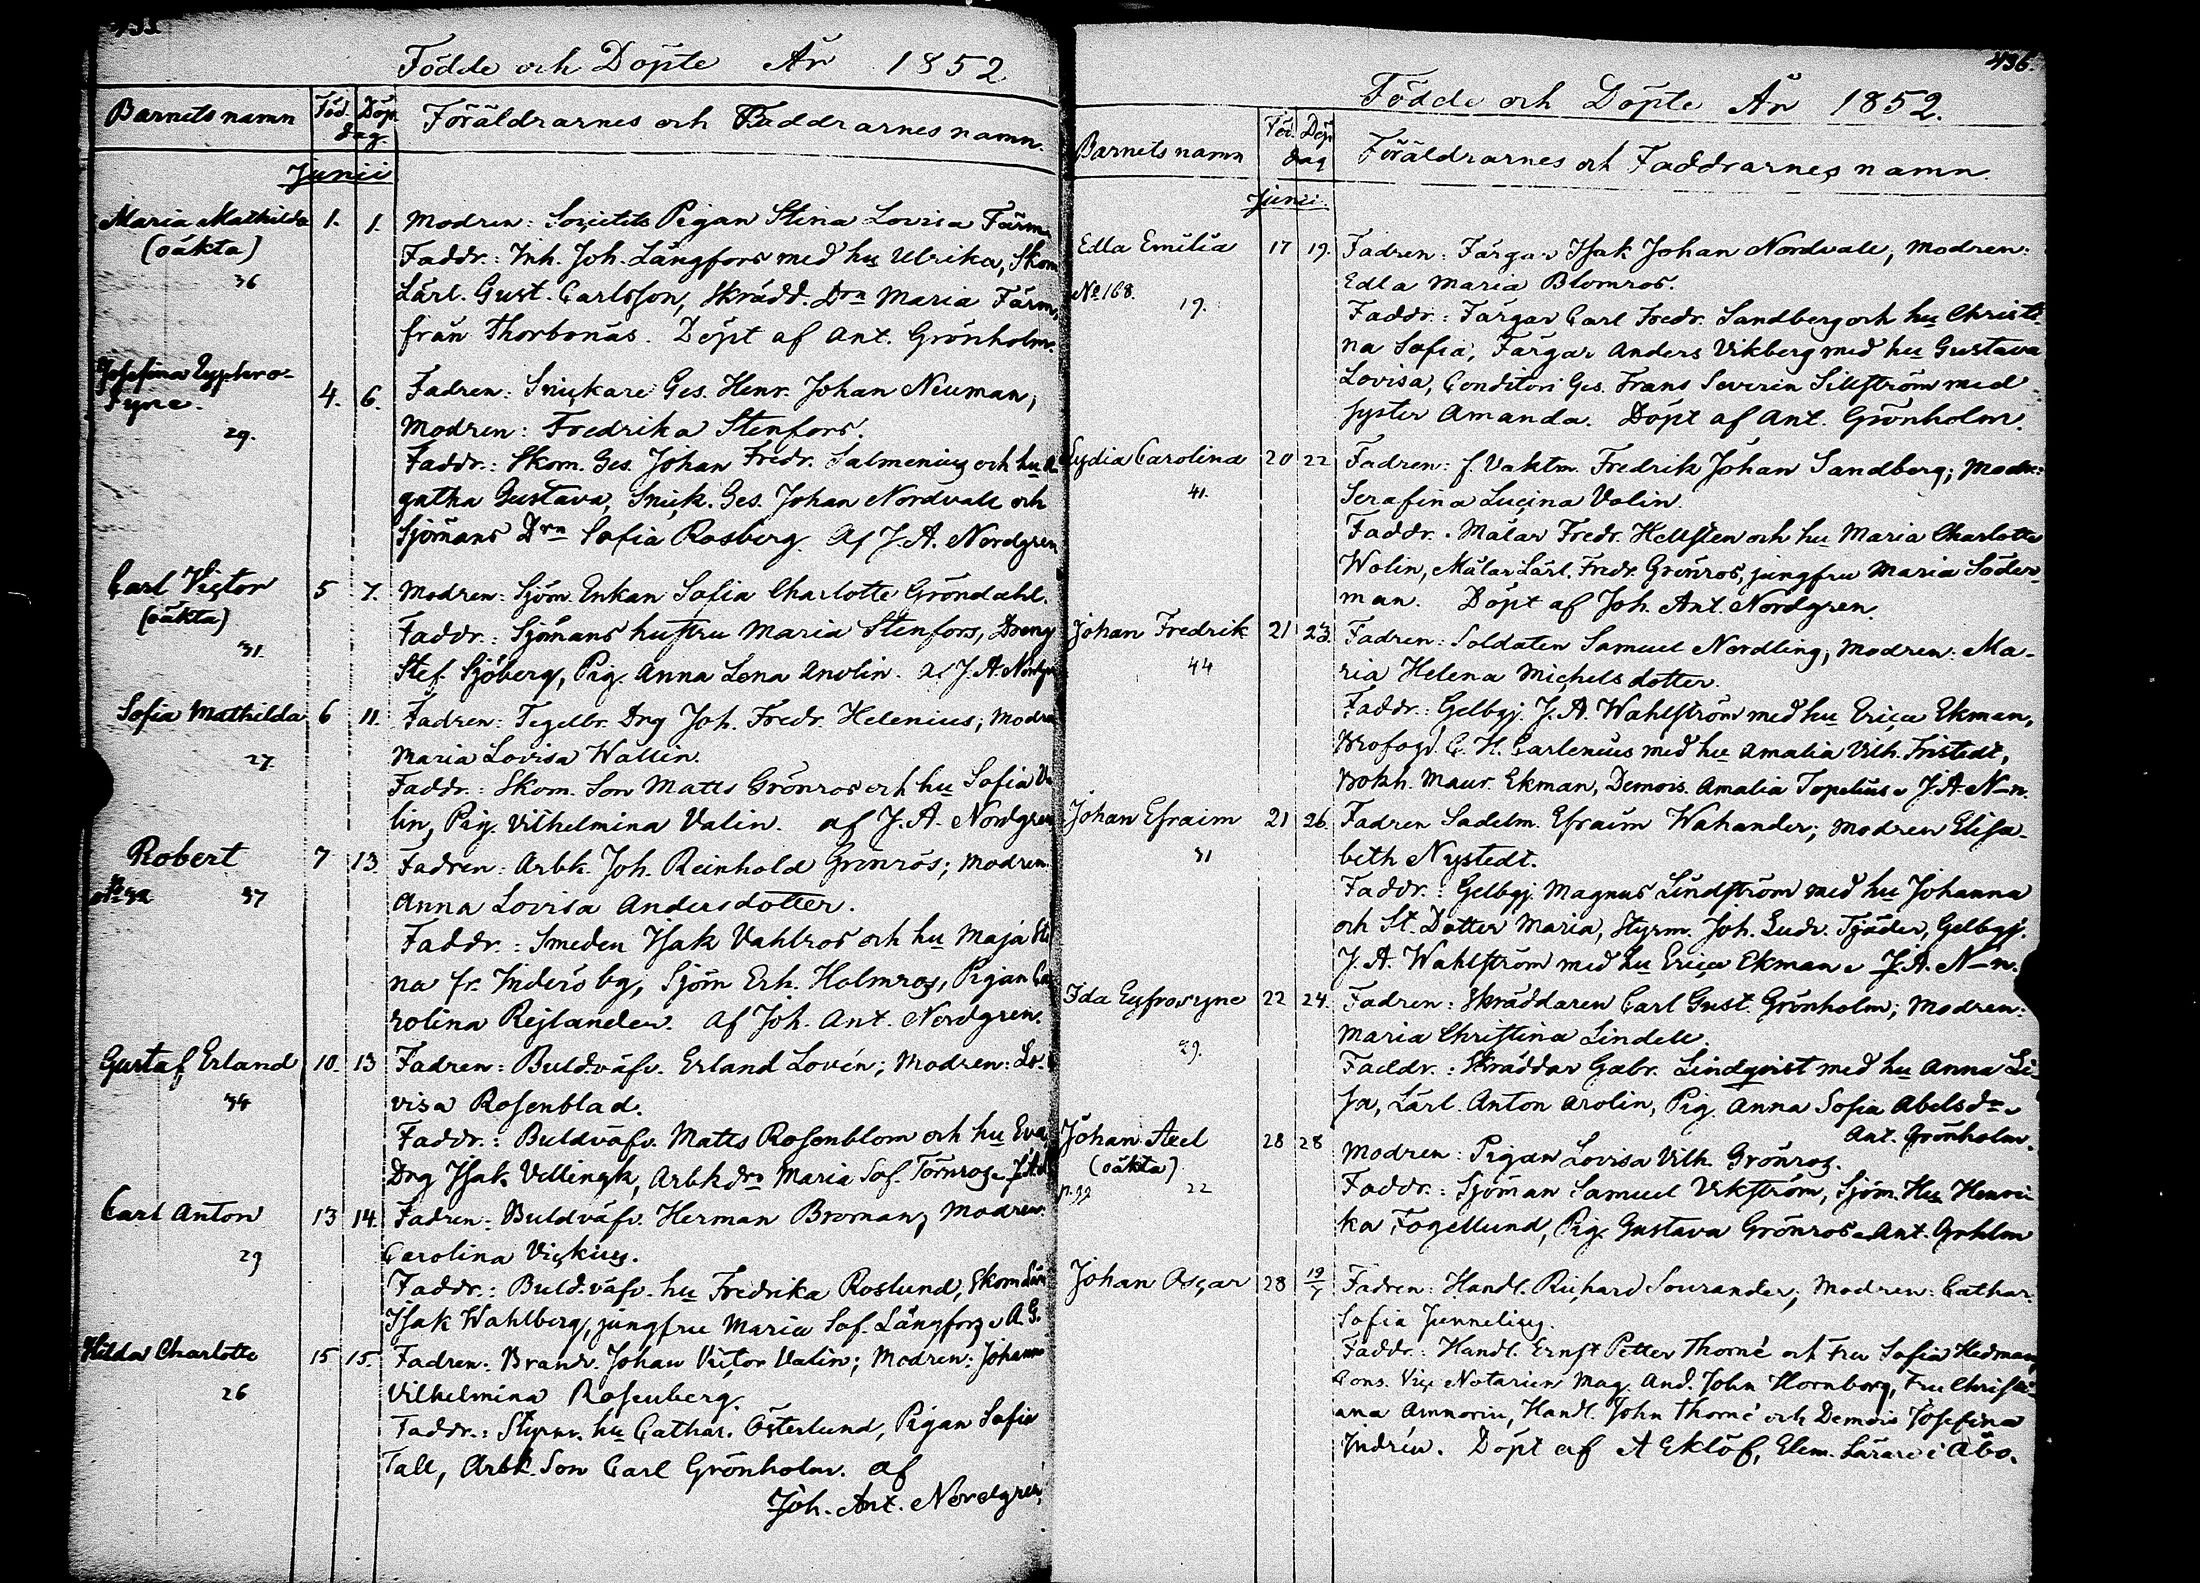 Födde och Döpte År 1852
Barnets namn Föd. Döp. dag. Föräldrarnes och Faddrarnes namn.
Junii
Maria Mathilda 1. 1. Modren: Societets Pigan Stina Lovisa Färm
(oäkta) Faddr.: Inh. Joh. Långfors med hu Ulrika, Skom
36 Lärl. Gust. Carlsson, Skrädd. Drn Maria Färm,
från Thorbonäs. Döpt af Ant. Grönholm.
Josefina Euphro- 4. 6. Fadren: Snickare Ges. Henr. Johan Neuman,
syne. Modren: Fredrika Stenfors.
29. Faddr.: Skom. Ges. Johan Fredr. Salmenius och hu A
gatha Gustava, Snick. Ges. Johan Nordvall och
Sjömans Drn Sofia Rosberg. Af J. A. Nordgren
Carl Victor 5 7. Modren: Sjöm. Enkan Sofia Charlotte Gröndahl.
(oäkta) Faddr.: Sjömans hustru Maria Stenfors, Dreng
31. Stef. Sjöberg, Pig. Anna Lena Arolin. Af J. A. Nordgr
Sofia Mathilda 6 11. Fadren: Tegelbr. Drg Joh. Fredr. Helenius; Modren
Maria Lovisa Wallin.
27. Faddr.: Skom. Son Matts Grönros och hu Sofia Va
lin, Pig. Vilhelmina Valin. af J. A. Nordgren
Robert 7 13 Fadren: Arbk. Joh. Reinhold Grönros; Modren
37 Anna Lovisa Andersdotter.
Faddr.: Smeden Isak Vahlros och hu Maja Sti
na fr. Inderö by, Sjöm Erh. Holmros, Pigan Ca
rolina Rejlander. Af Joh. Ant. Nordgren.
Gustaf Erland 10. 13 Fadren: Buldväfv. Erland Lovén; Modren: Lo-
34 visa Rosenblad.
Faddr.: Buldväfv. Matts Rosenblom och hu Eva
Drg Isak Vellingk, Arbkdrn Maria Sof. Törnros
Carl Anton 13 14. Fadren: Buldväfv. Herman Broman; Modren
29 Carolina Vickius.
Faddr.: Buld.väfv. hu Fredrika Roslund, Skom Lärl
Isak Wahlberg, jungfru Maria Sof. Långfors, A. G.
Hilda Charlotte 15 15. Fadren: Brandv. Johan Victor Valin; Modren: Johanna
26 Vilhelmina Rosenberg.
Faddr.: Styrm. hu Cathar. Österlund, Pigan Sofia
Tall, Arbk. Son Carl Grönholm. af
Joh. Ant. Nordgren
436.
Födde och Döpte År 1852.
Barnets namn Föd. Döp. dag Föräldrarnes och Faddrarnes namn.
Junii.
Edla Emilia 17 19. Fadren: Färgar Isak Johan Nordvall, Modren:
Edla Maria Blomros.
No 168. 19. Faddr.: Färgar Carl Fredr. Sandberg och hu Christi-
na Sofia, Färgar Anders Vikberg med hu Gustava
Lovisa, Conditori Ges. Frans Severin Sillström med
syster Amanda. Döpt af Ant. Grönholm.
Lydia Carolina 20 22 Fadren: f. Vaktm. Fredrik Johan Sandberg; Modren:
41. Serafina Lucina Valin.
Faddr.: Målar Fredr. Hellsten och hu Maria Charlotte
Wolin, Målar Lärl. Fredr. Grönros, jungfru Maria Söder-
man. Döpt af Joh. Ant. Nordgren.
Johan Fredrik 21 23. Fadren: Soldaten Samuel Nordling, Modren: Ma-
44 ria Helena Michelsdotter.
Faddr.: Gelbgj. J. A. Wahlström med hu Erica Ekman,
Krofogd. C. H. Carlenius med hu Amalia Vilh. Fristedt,
Bokh. Maur. Ekman, Demois. Amalia Topelius J. A. N-n.
Johan Efraim 21 26. Fadren Sadelm. Efraim Wahander; Modren Elisa-
31 beth Nystedt.
Faddr.: Gelbgj. Magnus Lindström med hu Johanna
och St. Dotter Maria, Styrm. Joh. Ludv. Tjäder, Gelbgj.
J. A. Wahlström med hu Erica Ekman J. A. N-n.
Ida Eyfrosyne 22 24. Fadren: Skräddaren Carl Gust. Grönholm; Modren:
Maria Christina Lindell.
29. Faddr.: Skräddar Gabr. Lindqvist med hu Anna Li-
sa, Lärl. Anton Arolin, Pig. Anna Sofia Abelsdr
Ant. Grönholm.
Johan Axel 28 28 Modren: Pigan Lovisa Vilh. Grönros.
(oäkta) Faddr.: Sjöman Samuel Vikström, Sjöm. Hu Henri
p. 99 22 ka Fogellund, Pig. Gustava Grönros Ant. Grhlm
Johan Oscar 28 19/7 Fadren: Handl. Richard Sourander; Modren: Cathar.
Sofia Junnelius.
Faddr.: Handl. Ernst Petter Thorné och Fru Sofia Hedman,
Cons. Vice Notarien Mag. And. John Hornborg, Fru Christi-
ana Ammorin, Handl. John Thorné och Demois Josefina
Indrén. Döpt af A Eklöf, Elem. Lärare i Åbo.